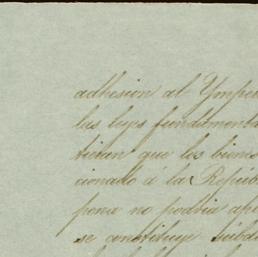 adhesion al Ympe
las leyes fundamenta
tieran que los biene
cionado á la Repúb
pena no podria ap
se constituye subd